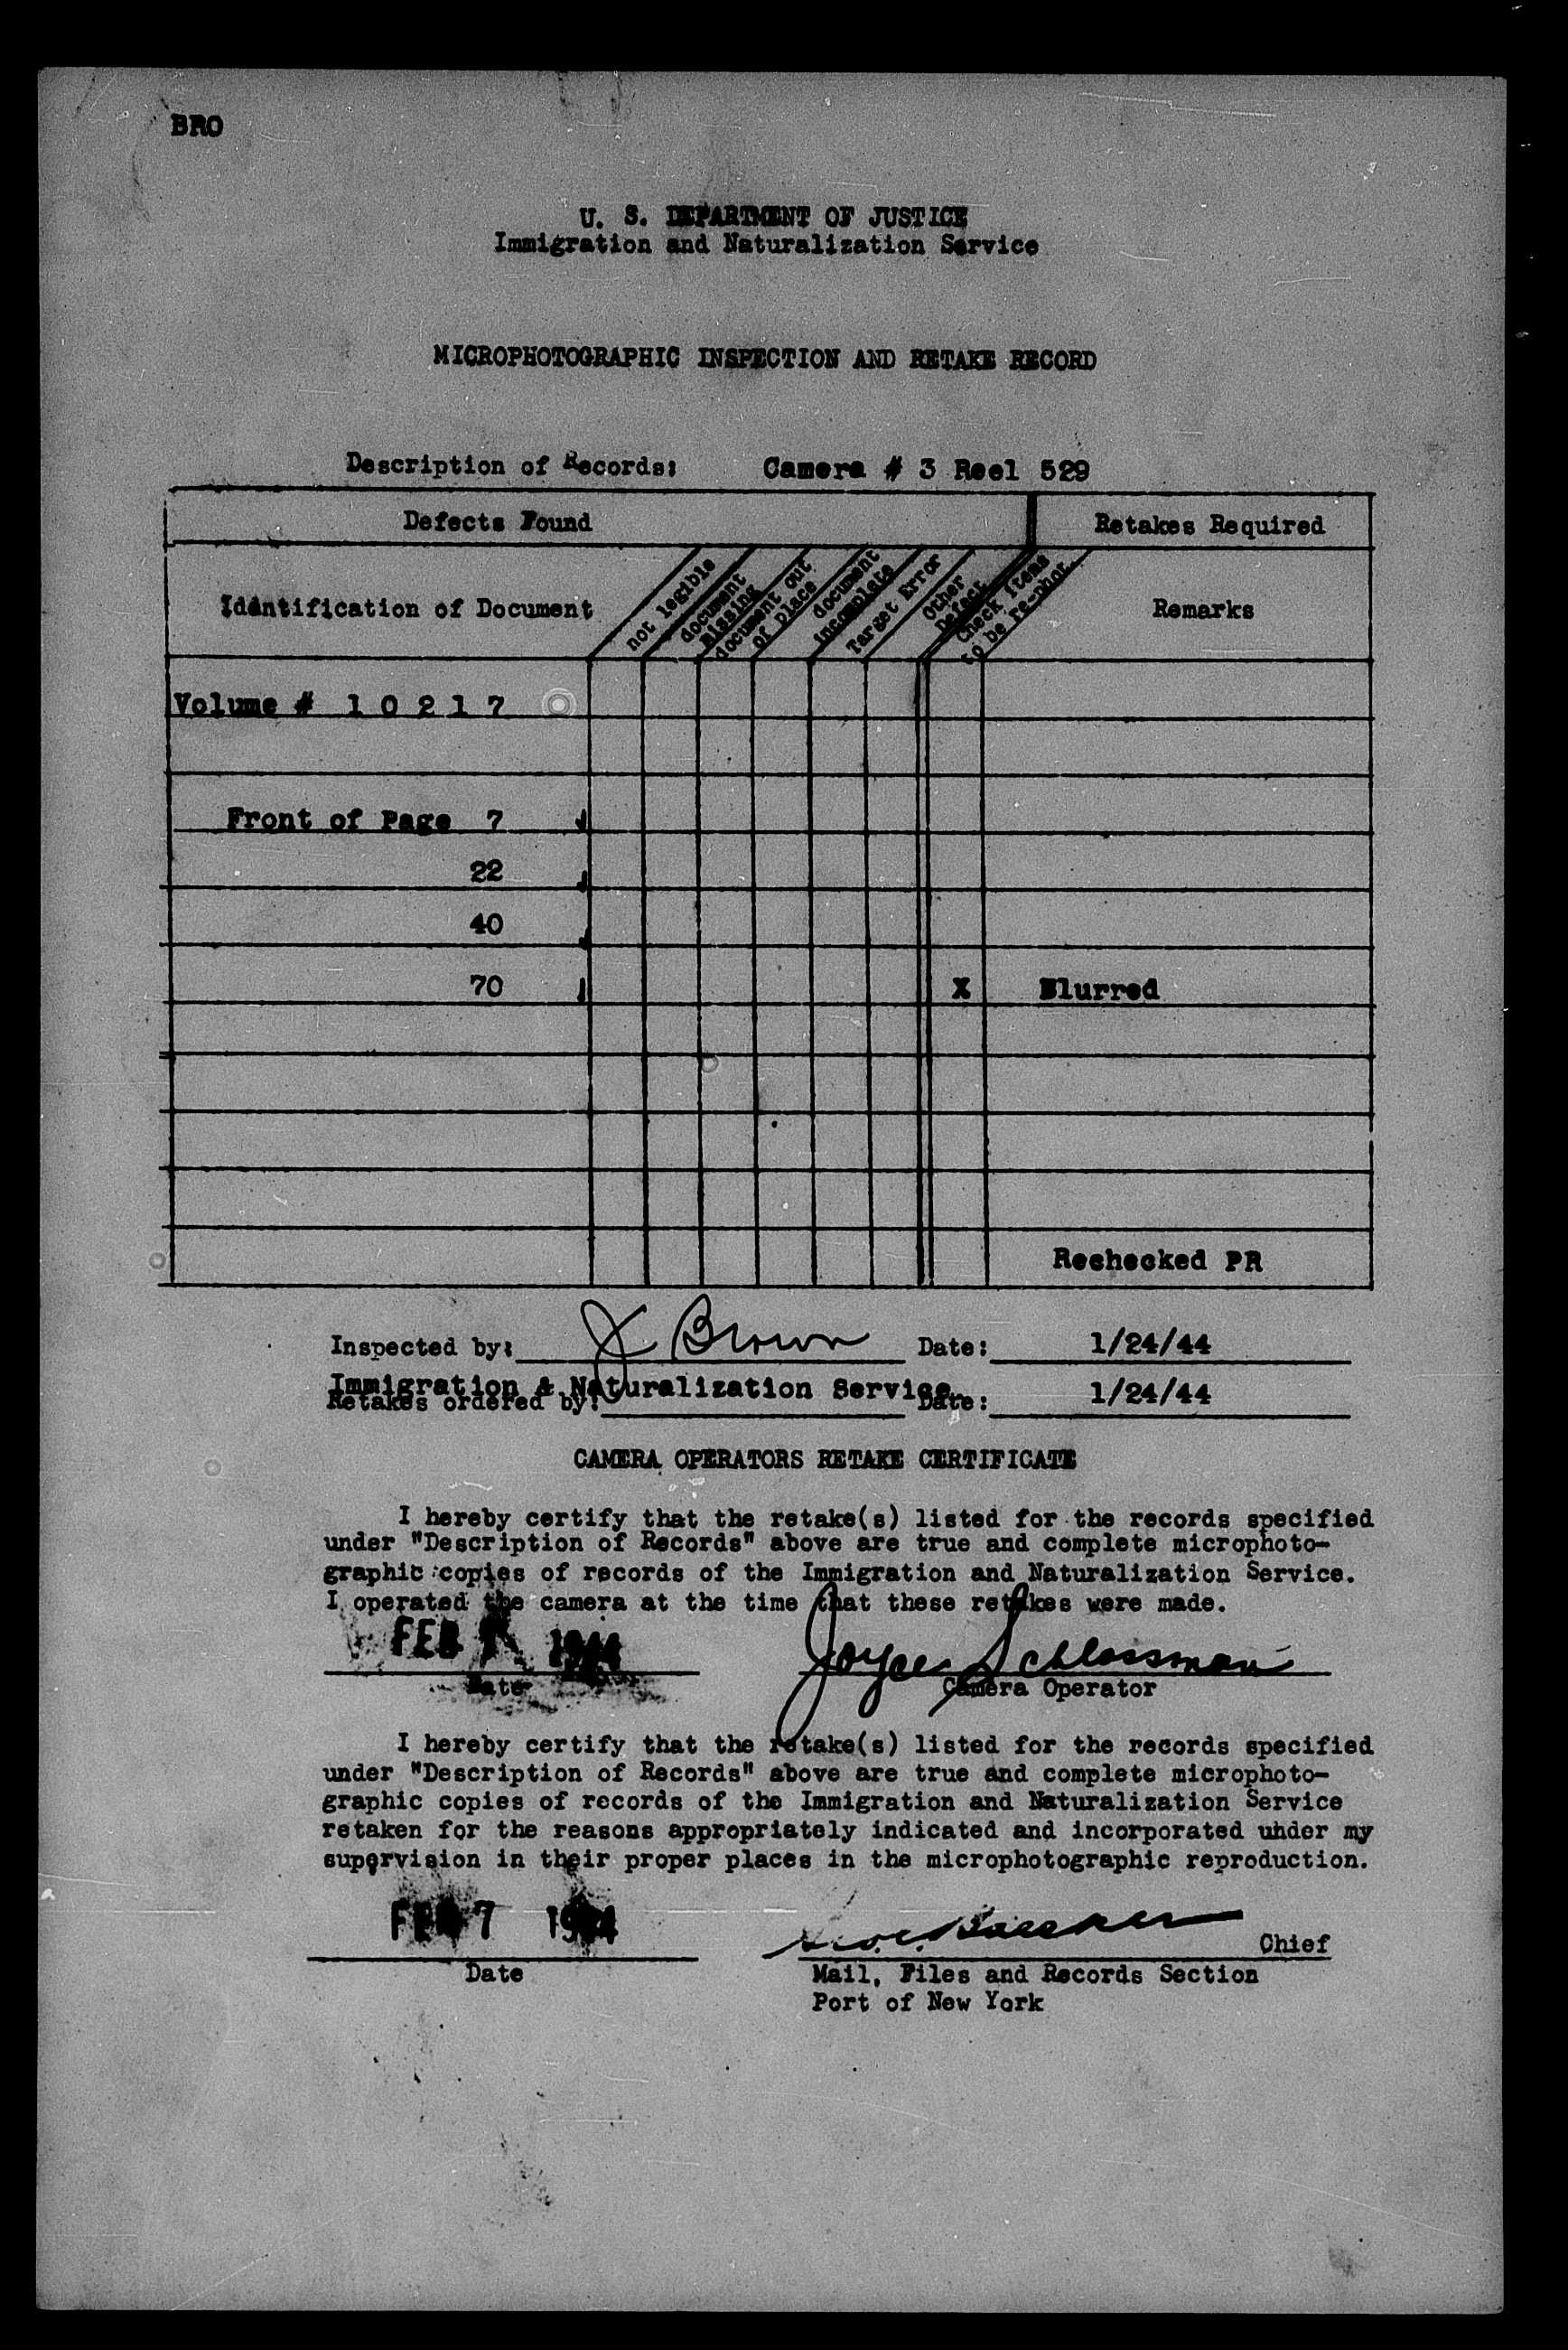 BRO
U. S. DEPARTMENT OF JUSTICE
Immigration and Naturalization Service
MICROPHOTOGRAPHIC INSPECTION AND RETAKE RECORD
Description of Records: Camera # 3 Reel 529
Defects Found Retakes Required
Identification of Document
not legible
document
missing
document out
of place
document
incomplete
Target Error
Other
Defect
Check items
to be re-phot.
Remarks
Volume # 1 0 2 1 7
Front of Page 7
22
40
70 X Blurred
Rechecked PR
Inspected by: J Brown Date: 1/24/44
Immigration & Naturalization Service
Retakes ordered by: Date: 1/24/44
CAMERA OPERATORS RETAKE CERTIFICATE
I hereby certify that the retake(s) listed for the records specified
under "Description of Records" above are true and complete microphoto-
graphic copies of records of the Immigration and Naturalization Service.
I operated the camera at the time that these retakes were made.
FEB 1944 Joyce Schlossman
Date Camera Operator
I hereby certify that the retake(s) listed for the records specified
under "Description of Records" above are true and complete microphoto-
graphic copies of records of the Immigration and Naturalization Service
retaken for the reasons appropriately indicated and incorporated uhder my
supervision in their proper places in the microphotographic reproduction.
FEB 7 1944 Chief
Date Mail, Files and Records Section
Port of New York